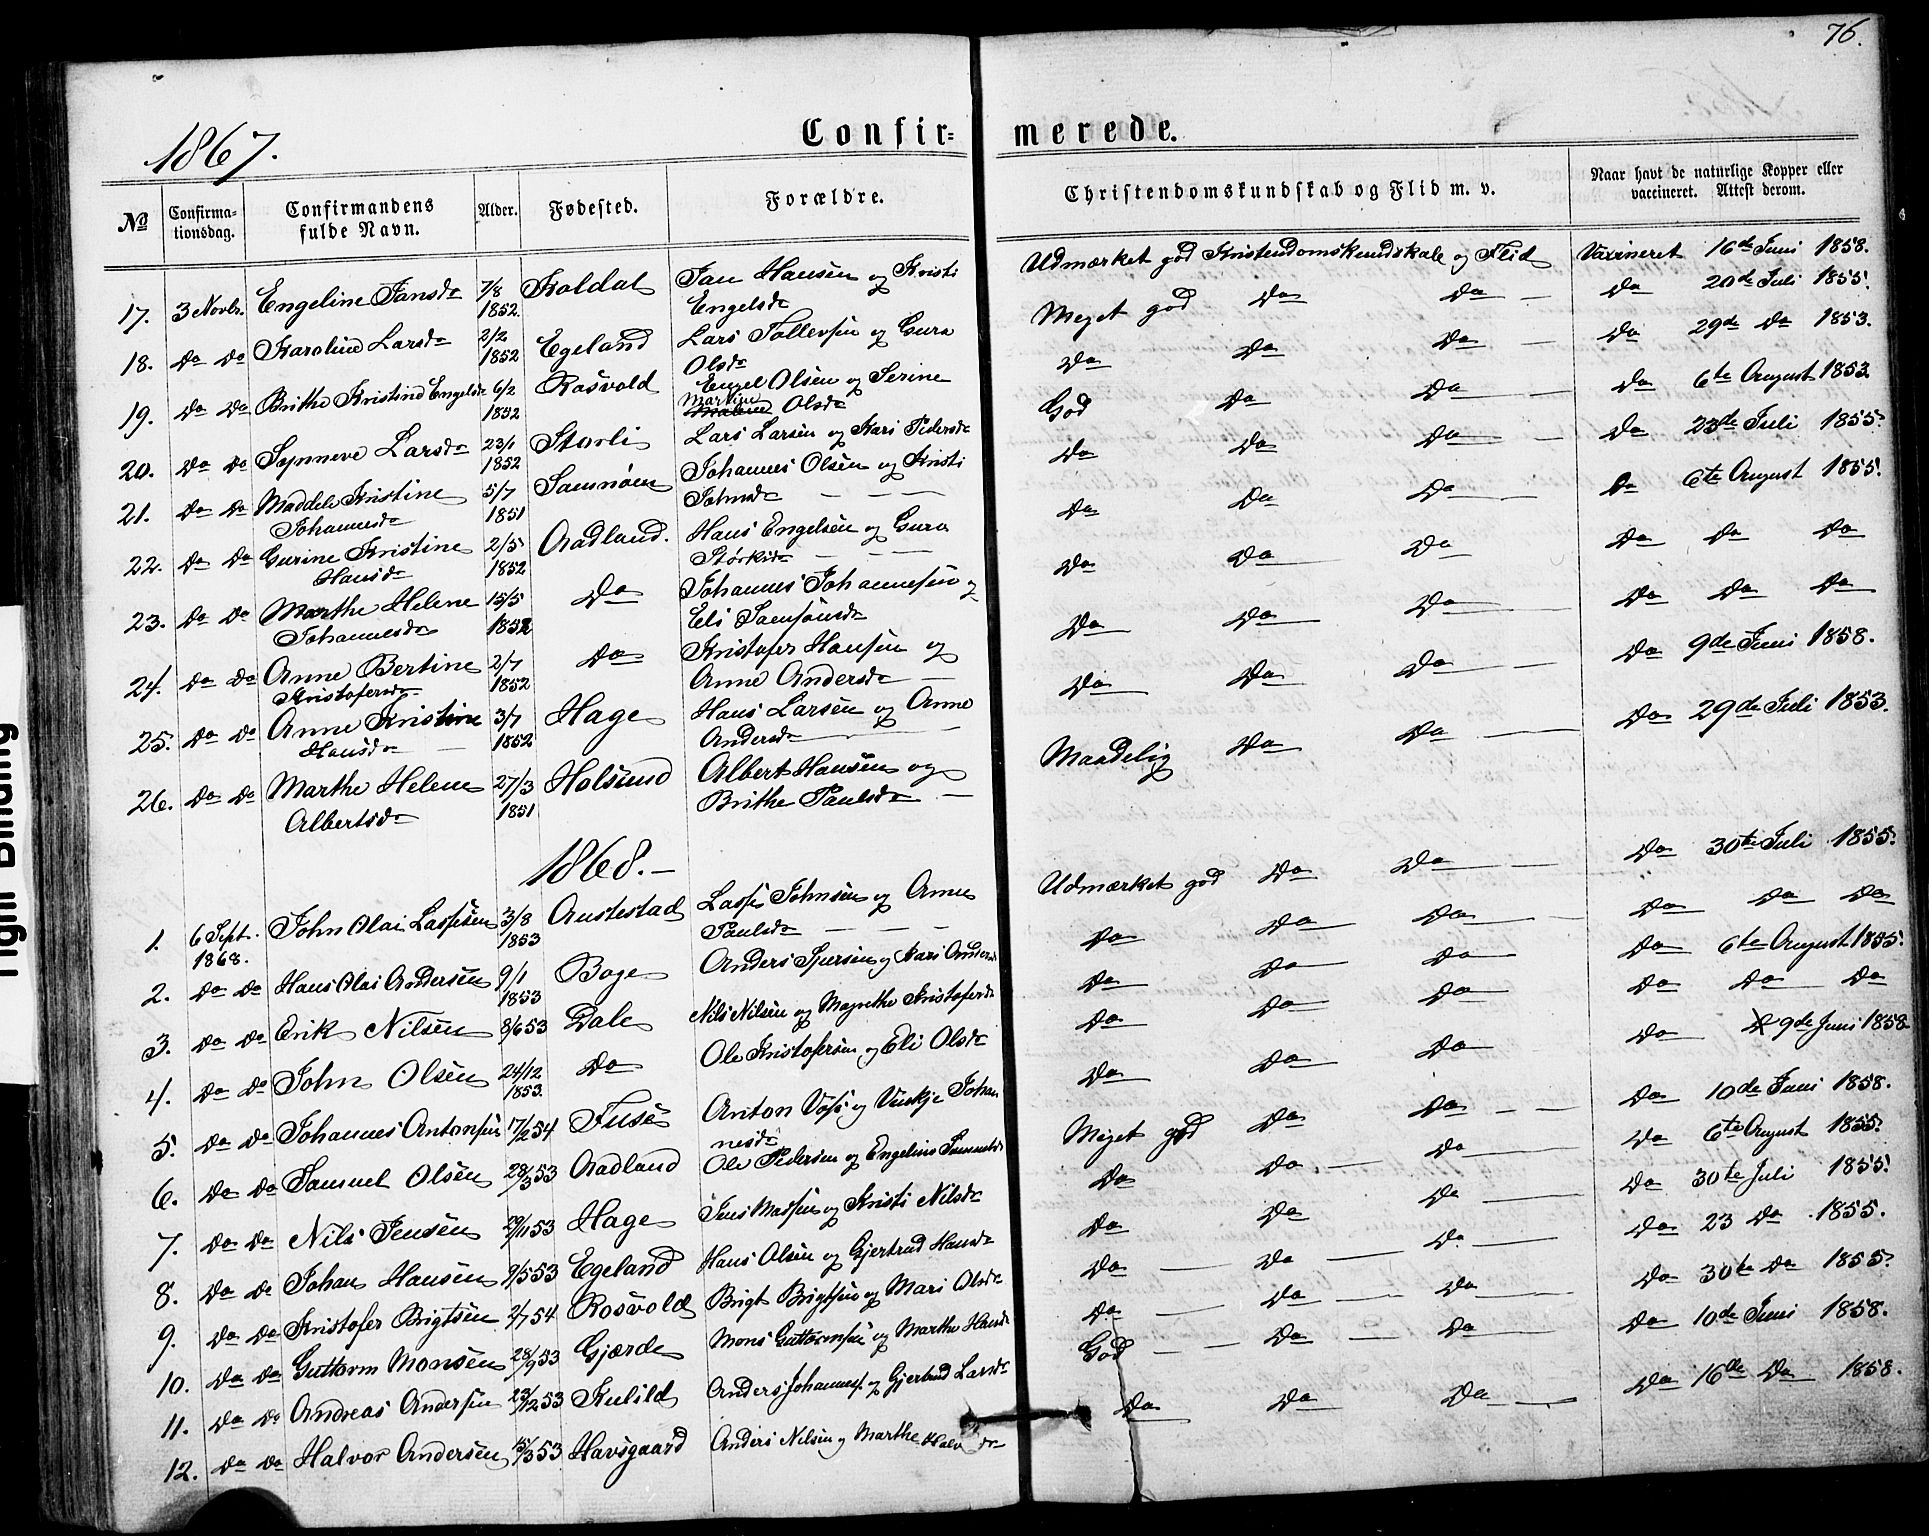 76.
1867.
Confir= merede.
No
Confirma-
tionsdag.
Confirmandens
fulde Navn.
Alder.
Fødested.
Forældre.
Christendomskundskab og Flid m. v.
Naar havt de naturlige Kopper eller
vaccineret. Attest derom.
17. 3 Novbr. Engeline Jansdr 7/8 1852 Koldal Jan Hansen og Kristi Engelsdr Udmærket god Kristendomskundskab og Flid Vaxineret 16de Juni 1858.
18. Do Do Karoline Larsdr 2/2 1852 Egeland Lars Tollevsen og Gura Olsdr Meget god Do Do Do 20de Juli 1855.
19. Do Do Brithe Kristine Engelsdr 6/2 1852 Rosvold Engel Olsen og Serine Martine Olsdr Do Do Do Do 29de Do 1853.
20. Do Do Synneve Larsdr 23/1 1852 Storli Lars Larsen og Kari Pedersdr God Do Do Do 6te August 1853
21. Do Do Maddele Kristine Johannesdr 5/7 1851 Samnøen Johannes Olsen og Kristi Johnsdr Do Do Do Do 23de Juli 1855.
22. Do Do Gurine Kristine Hansdr 2/5 1852 Aadland. Hans Engelsen og Gura Størksdr Do Do Do Do 6te August 1855.
23. Do Do Marthe Helene Johannesdr 15/5 1852 Do Johannes Johannesen og Eli Samsonsdr Do Do Do Do Do Do
24. Do Do Anne Bertine Kristofersdr 2/7 1852 Do Kristofer Hansen og Anne Andersdr Do Do Do Do Do Do
25. Do Do Anne Kristine Hansdr 3/7 1852 Hage Hans Larsen og Anne Andersdr Do Do Do Do 9de Juni 1858.
26. Do Do Marthe Helene Albertsdr 27/3 1851 Holsund Albert Hansen og Brithe Paulsdr Maadelig Do Do Do 29de Juli 1853.
1868.
1. 6 Sept. 1868. John Olai Lassesen 3/8 1853 Austestad Lasse Johnsen og Anne Paulsdr Udmærket god Do Do Do 30te Juli 1855.
2. Do Do Hans Olai Andersen 9/1 1853 Boge Anders Sjursen og Kari Andersdr Do Do Do Do Do Do
3. Do Do Erik Nilsen 8/6 53 Dale Nils Nilsen og Magrethe Kristofersdr Do Do Do Do 6te August 1855.
4. Do Do John Olsen 24/12 1853. Do Ole Kristofersen og Eli Olsdr Do Do Do Do Do Do
5. Do Do Johannes Antonsen 17/2 54 Fuse Anton Voss og Johannesdr Do Do Do Do 9de Juni 1858
6. Do Do Samuel Olsen 28/3 53 Aadland Ole Pedersen og Engeline Samuelsdr Meget god Do Do Do 10de Juni 1858.
7. Do Do Nils Jensen 29/11 53 Hage Jens Massen og Kristi Nilsdr Do Do Do Do 6te August 1855.
8. Do Do Johan Hansen 9/5 53 Egeland Hans Olsen og Gjertrud Hansdr Do Do Do Do 30te Juli 1855.
9. Do Do Kristofer Brigtsen 2/7 54 Rosvold Brigt Brigtsen og Mari Olsdr Do Do Do Do 23 Do 1855.
10. Do Do Guttorm Monsen 28/9 53 Gjærde Mons Guttormsen og Marthe Hansdr Do Do Do Do 30te Do 1855.
11. Do Do Andreas Andersen 23/12 53 Kulild Anders Johannes. og Gjertrud Larsdr God Do Do Do 10de Juni 1858.
12. Do Do Halvor Andersen 15/3 53 Havsgaard Anders Nilsen og Marthe Halv dr Do Do Do Do 16de Do 1858.